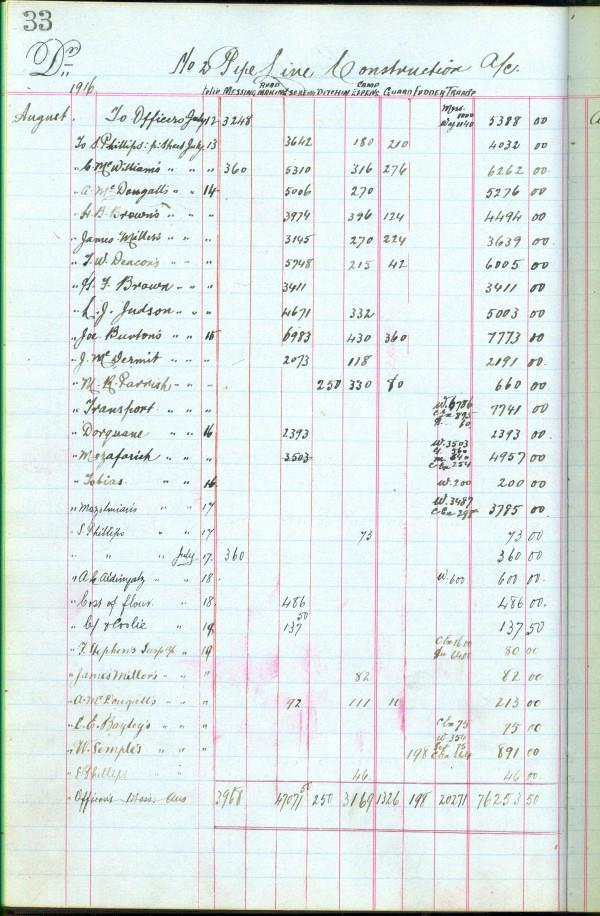 33
Dr No 2 Pipe Line Construction a/c.
1916 Folio MESSING ROAD MAKING DITCHIN CAMP EXPENSE GUARD FODDER TRANSP
August. To Officers July 12 3248 Mess. 1000 1140 5388 00
To S. Phillips: p: Sheet July. 13 3642 180 210 4032 00
" C. McWilliam's " " " 360 5310 316 276 6262 00
" A. McDougall's " " 14 5006 270 5276 00
" H. B. Brown's " " " 3974 396 124 4494 00
" James Miller's " " " 3145 270 224 3639 00
" T. W. Deacon's " " " 5748 215 42 6005 00
" H. F. Brown " " " 3411 3411 00
" L. J. Judson " " " 4671 332 5003 00
" Joe Burton's " " 15 6983 430 360 7773 00
" J. McDermit " " " 2073 118 2191 00
" M. R. Parrish " " " 250 330 80 660 00
" Transport " " " W. 6786 Cba 895 60 7741 00
" Dorquane " " 16 2393 2393 00
" Mozafarieh " " " 3503 W. 3503 360 840 Cba 254 4957 00
" Tobias " " 16 W. 200 200 00
" " " 17 W. 3487 Cba 298 3785 00
" S. Phillips " " 17 73 73 00
" " " July 17. 360 360 00
" A. C. " 18. W. 600 600 00
" Cost of flour " 18. 486 486 00
" & Coolie " 19 137 50 137 50
" T. Stephen's " 19 Cba 1600 6400 80 00
" James Miller's " " 82 82 00
" A. McDougall's " " 92 111 10 213 00
" C. E. Bayley's " " Cba 75 75 00
" W. Semple's " " 198 W. 354 75 Cba 264 891 00
" S. Phillips " " 46 46 00
" Officers 3968 47071 50 250 3169 1326 198 20271 76253 50